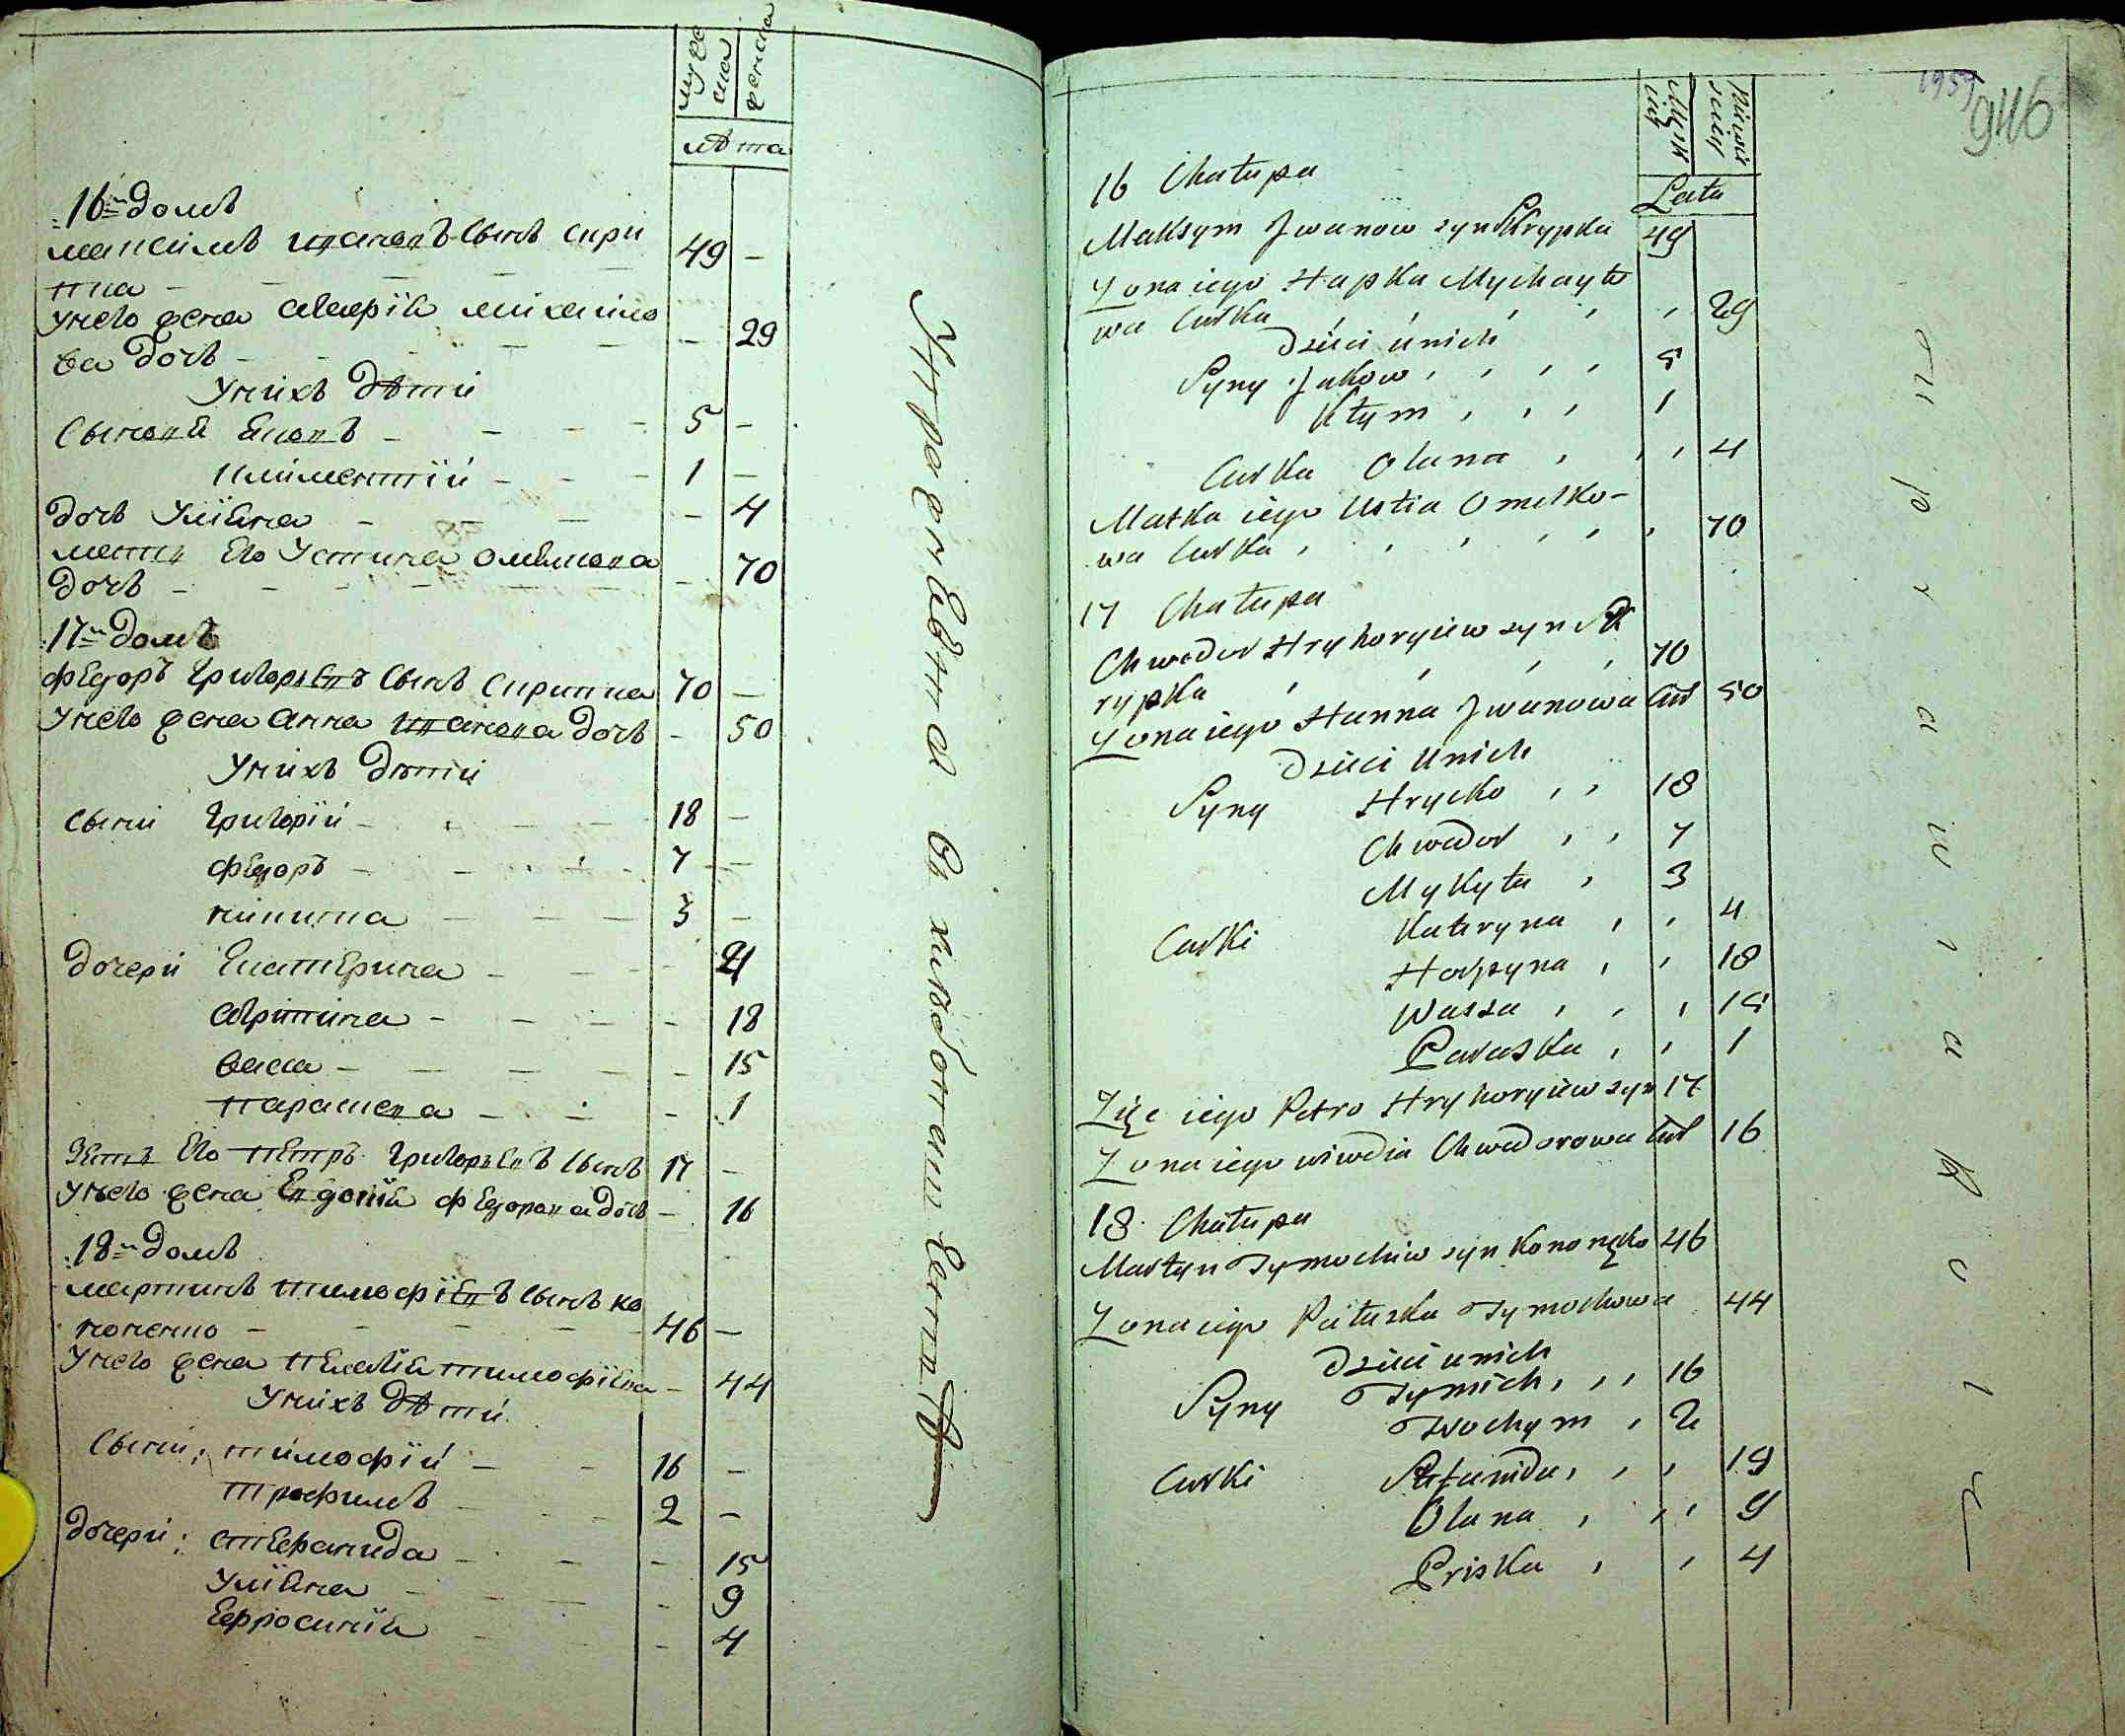 муже
ска
женска
лѣта
16й домъ
максимъ ивановъ сынъ скри 49 —
пка
унего жена агафія михайло — 29
ва дочь
Унихъ дѣти
Сыновя Яковъ 5 —
климентій 1 —
дочь Уліяна — 4
мать его Устина омелкова — 70
дочь
17й домъ
федоръ григорьевъ сынъ скрипка 70 —
унего жена анна иванова дочь — 50
Унихъ дѣти
сыни григорій 18 —
федоръ 7 —
никита 3 —
дочери Екатерина 4
агрипина — 18
васса — 15
параскева — 1
Зять его петръ григорьевъ сынъ 17 —
унего жена Евдокія федорова дочь — 16
18й домъ
мартинъ тимофіевъ сынъ ко
ноненко 46 —
унего жена пелагія тимофіева — 44
Унихъ дѣти
Сыни: тимофій 16 —
трофимъ 2 —
дочери: степанида — 15
Уліяна — 9
Ефросинія — 4
1959
946
Męzk
iej
Niewie
sciey
Lata
16 Chałupa
Maksym Jwanow syn Skrypka 49
Zona iego Hapka Mychayło
wa Curka 29
Dzieci unich
Syny Jakow 5
Kłym 1
Curka Olana 4
Matka iego Ustia Omelko-
wa Curka 70
17 Chałupa
Chwedor Hryhoryiew syn Sk
rypka 70
Zona iego Hanna Jwanowa Cur 50
Dzieci unich
Syny Hrycko 18
Chwedor 7
Mykyta 3
Curki Kateryna 4
Horpyna 18
Wassa 15
Paraska 1
Zięc iego Petro Hryhoryiew syn 17
Zona iego Wiwdia Chwedorowa Cur 16
18 Chałupa
Martyn Tymochiw syn Kononęko 46
Zona iego Tymochowa 44
Dzieci unich
Syny Tymich 16
Trochym 2
Curki Stefanida 19
Olana 9
Priska 4